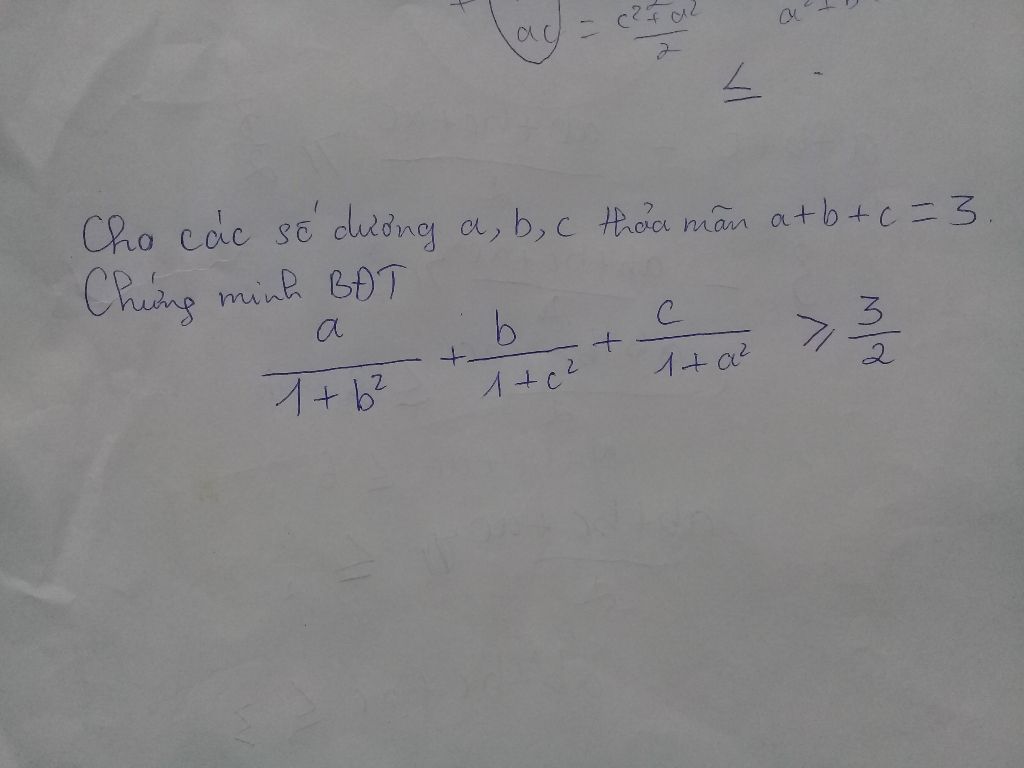 ac = c² + a² / 2
≤
Cho các số dương a, b, c thỏa mãn a+b+c = 3.
Chứng minh BĐT
a / 1+b² + b / 1+c² + c / 1+a² ≥ 3 / 2